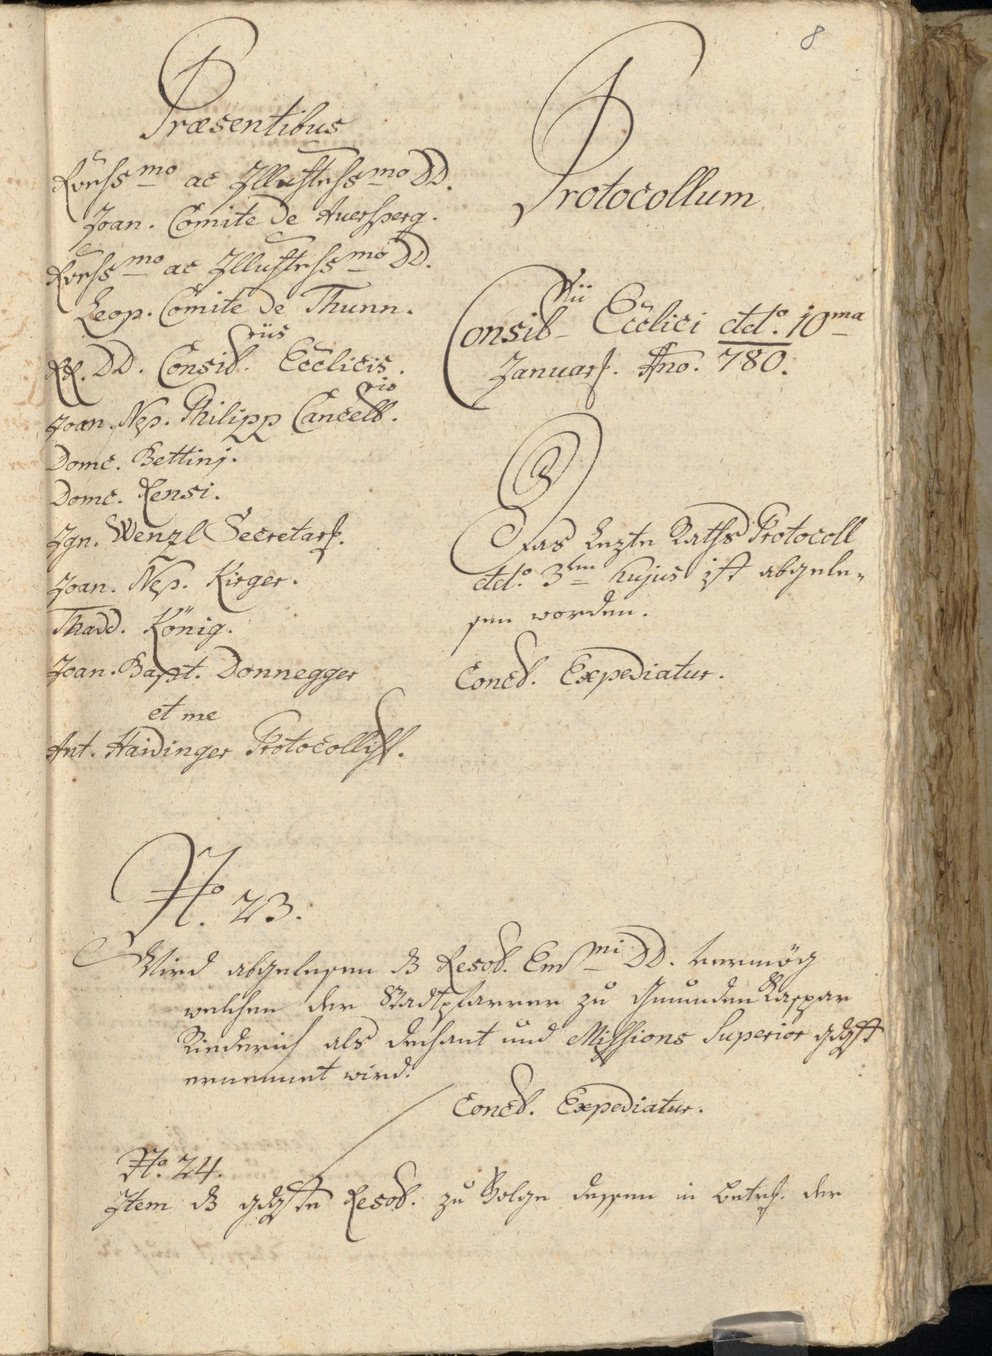 8
Præsentibus
Revss̄mo ac Illustrss̄mo DD.
Joan. Comite de Auersperg.
Revss̄mo ac Illustrss̄mo DD.
Leop. Comite de Thunn.
RR. DD. Consil.riis Ecclicis.
Joan. Nep. Philipp Cancell.rio
Domc. Bettinj.
Domc. Rensi.
Ign. Wenzl Secretarȷ.
Joan. Nep. Kirger.
Thadd. König.
Joan. Bapt. Donnegger
et me
Ant. Haidinger Protocollist.
Protocollum
Consil.rii Ecclici dtd.o 10ma
Januarȷ. Ano. 780.
Das Lezte Raths Protocoll
dtd.o 3ten hujus ist abgele„
sen worden.
Concl. Expediatur.
No. 23.
Wird abgelesen die Resol. Em̄mi DD. vermög
welchen der Stadtpfarrer zu Gmunden Kaspar
Riederich als Dechant und Missions Superior gdgst
ernennet wird.
Concl. Expediatur.
No. 24.
Item die gdgste Resol. zu Folge dessen in betref. der